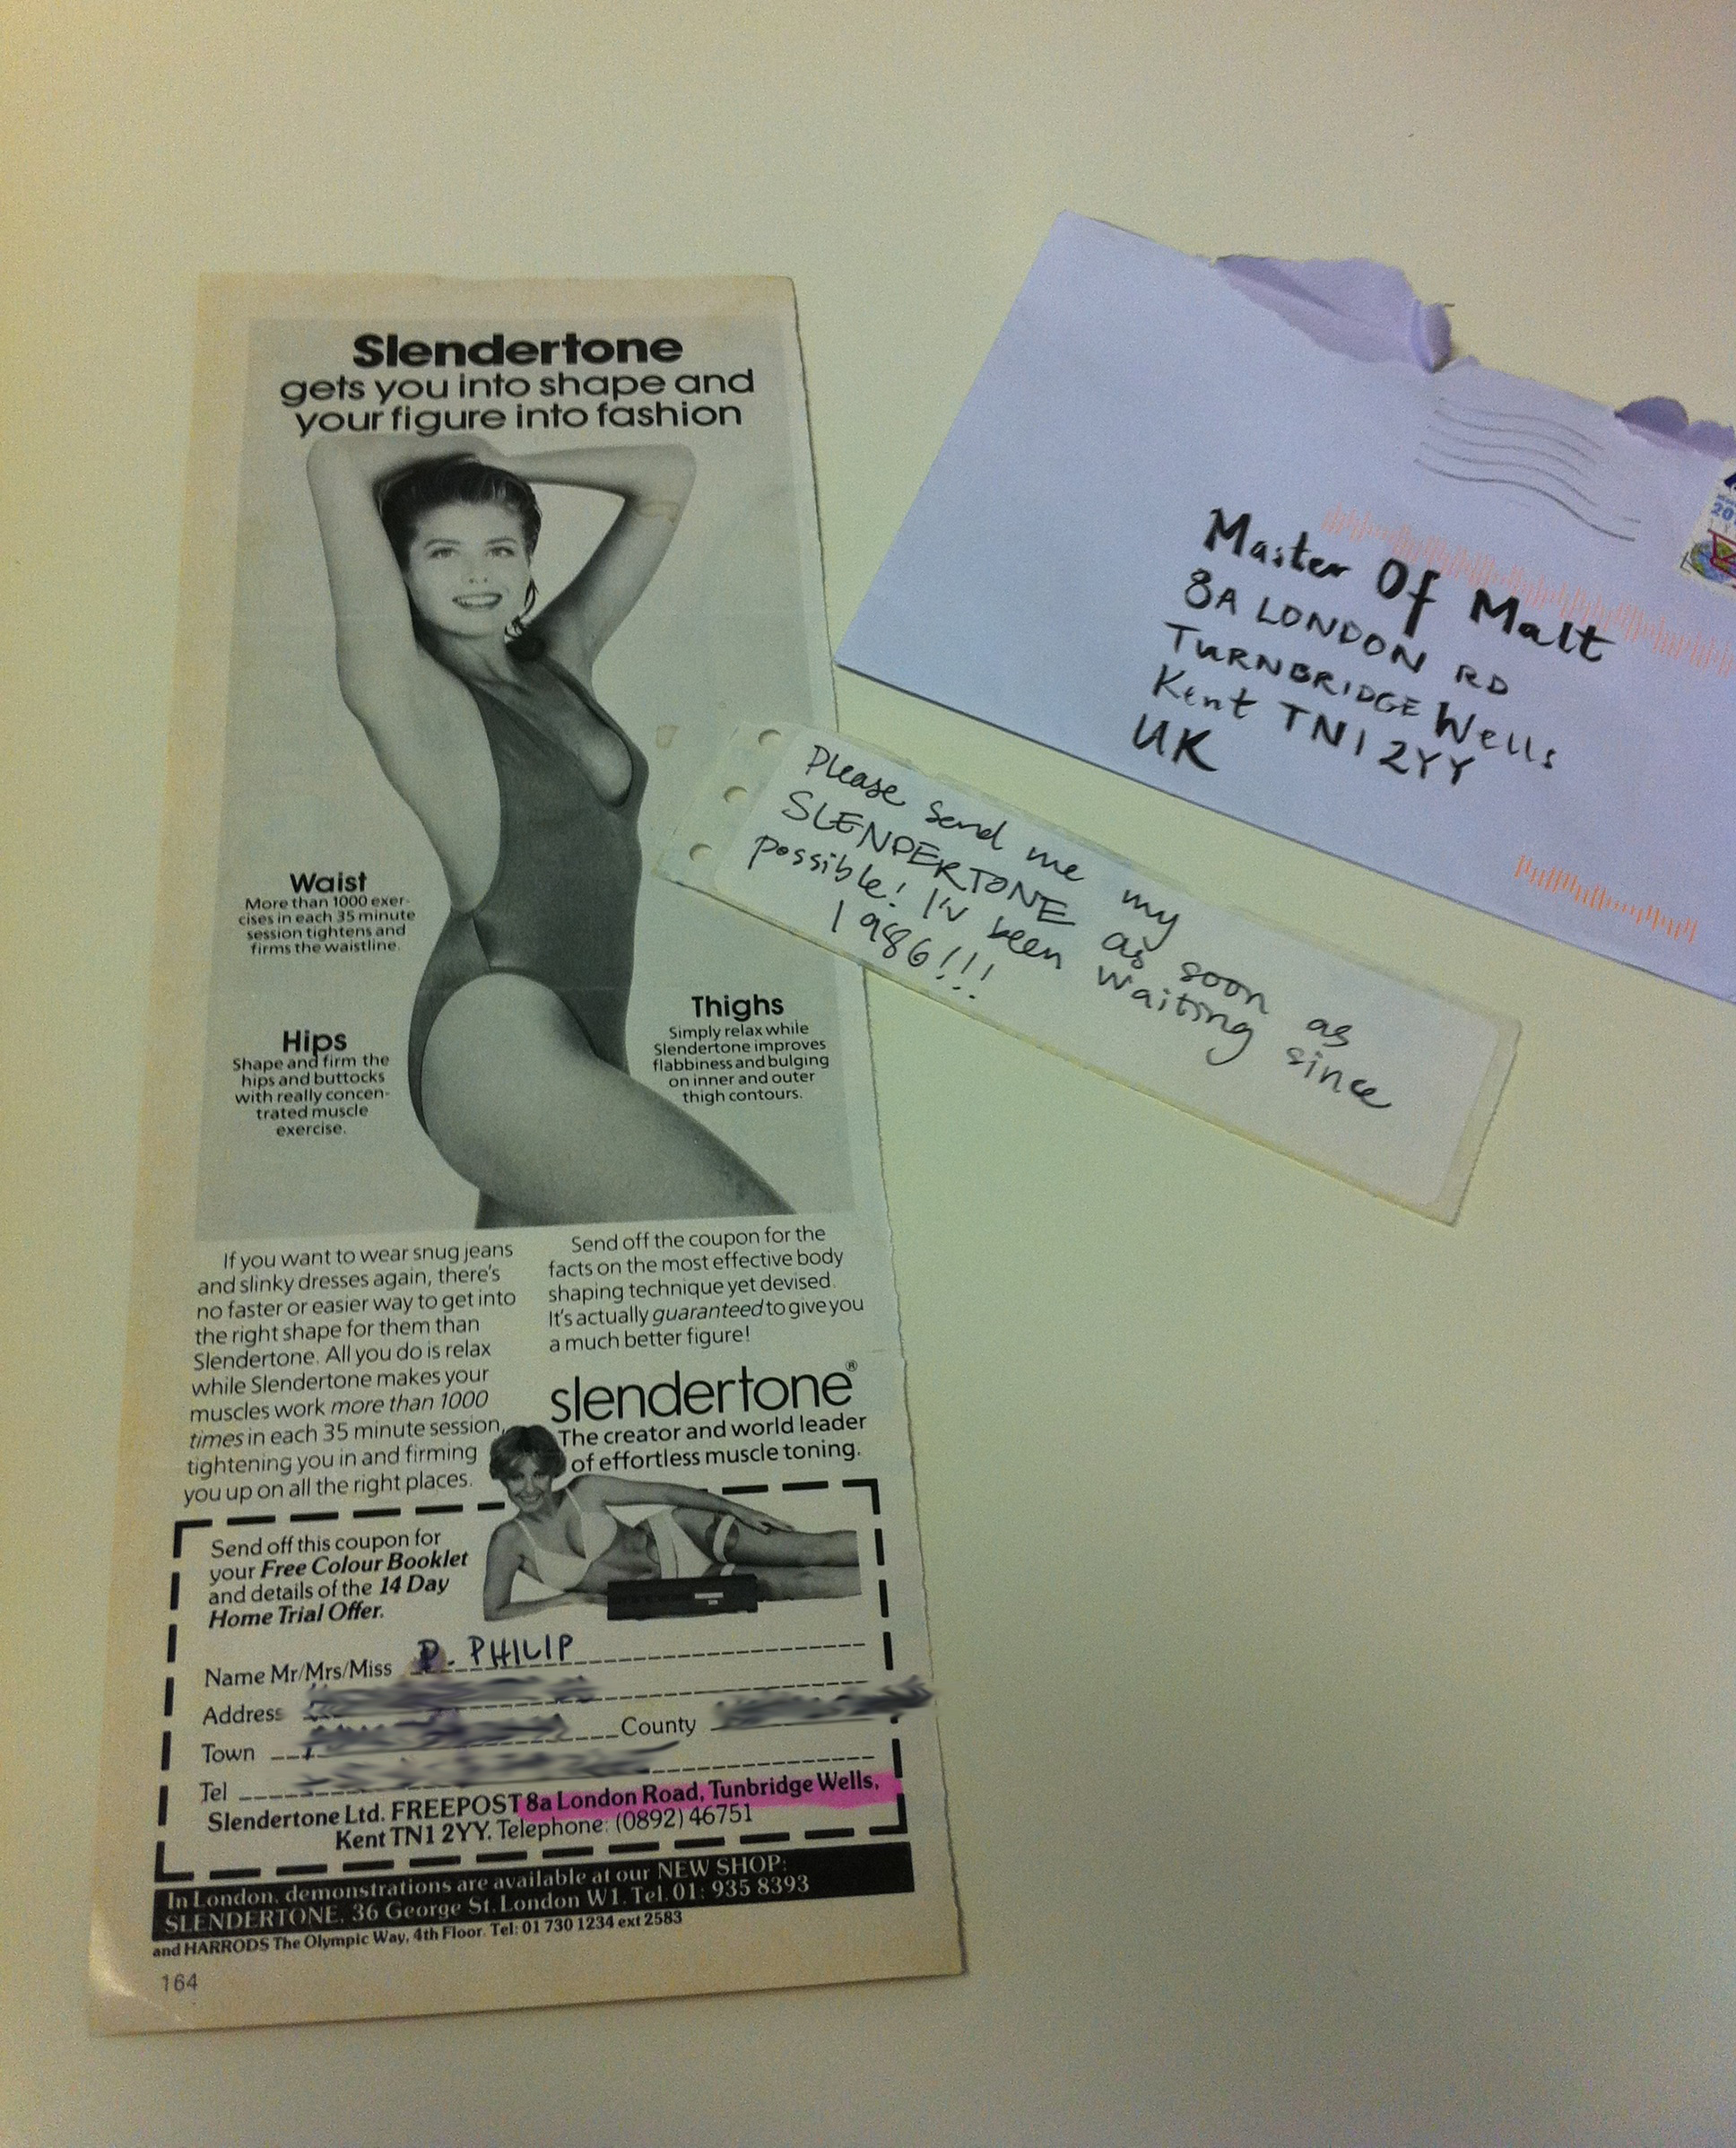 Slendertone
gets you into shape and
your figure into fashion
Waist
More than 1000 exer-
cises in each 35 minute
session tightens and
firms the waistline.
Hips
Shape and firm the
hips and buttocks
with really concen-
trated muscle
exercise.
Thighs
Simply relax while
Slendertone improves
flabbiness and bulging
on inner and outer
thigh contours.
If you want to wear snug jeans
and slinky dresses again, there's
no faster or easier way to get into
the right shape for them than
Slendertone. All you do is relax
while Slendertone makes your
muscles work more than 1000
times in each 35 minute session,
tightening you in and firming
you up on all the right places.
Send off the coupon for the
facts on the most effective body
shaping technique yet devised.
It's actually guaranteed to give you
a much better figure!
slendertone®
The creator and world leader
of effortless muscle toning.
Send off this coupon for
your Free Colour Booklet
and details of the 14 Day
Home Trial Offer.
Name Mr/Mrs/Miss P. PHILIP
Address
Town County
Tel
Slendertone Ltd. FREEPOST 8a London Road, Tunbridge Wells,
Kent TN1 2YY. Telephone: (0892) 46751
In London, demonstrations are available at our NEW SHOP:
SLENDERTONE, 36 George St. London W1. Tel. 01: 935 8393
and HARRODS The Olympic Way, 4th Floor. Tel: 01 730 1234 ext 2583
164
Please send me my
SLENDERTONE as soon as
possible! I'v been waiting since
1986!!!
Master Of Malt
8A LONDON RD
TURNBRIDGE Wells
Kent TN1 2YY
UK